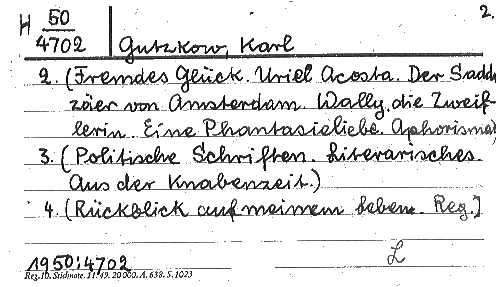 2.
H 50/4702
Gutzkow, Karl
2. (Fremdes Glück. Uriel Acosta. Der Saddu
zäer von Amsterdam. Wally, die Zweif-
lerin. Eine Phantasieliebe. Aphorisma)
3. (Politische Schriften. Literarisches.
Aus der Knabenzeit.)
4. (Rückblick auf meinem Leben. Reg.)
L
1950:4702
Reg. 10. Stidnote. 11.49. 20000. A. 638. S. 1023